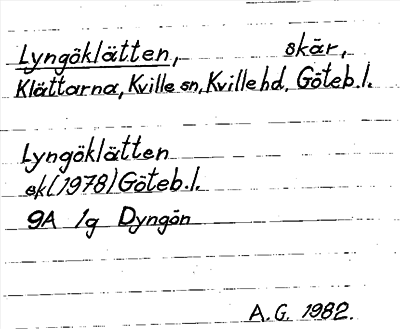 Lyngöklätten, skär,
Klättarna, Kville sn, Kville hd, Göteb.l.
Lyngöklätten
ek (1978) Göteb.l.
9A 1g Dyngön
A.G. 1982.